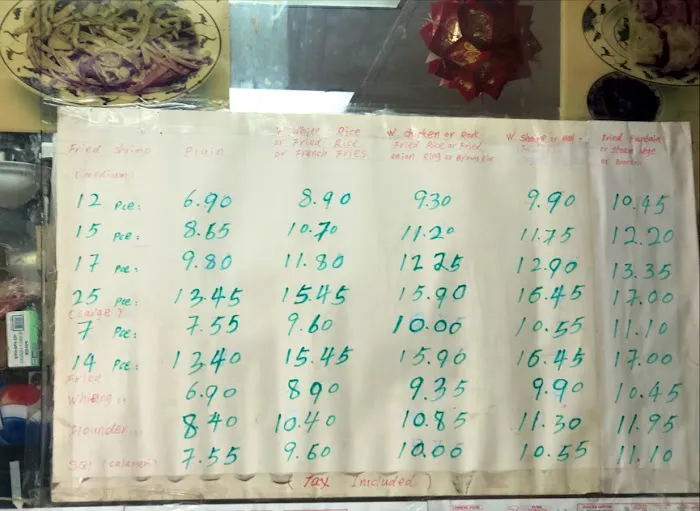 Fried Shrimp Plain W. White Rice or Fried Rice or French Fries W. Chicken or Pork Fried Rice or Fried onion Ring W. Shrimp or Fried Plantain or
(medium)
12 Pce: 6.90 8.90 9.30 9.90 10.45
15 Pce: 8.65 10.70 11.20 11.75 12.20
17 Pce: 9.80 11.80 12.25 12.90 13.35
25 Pce: 13.45 15.45 15.90 16.45 17.00
(Large)
7 Pce: 7.55 9.60 10.00 10.55 11.10
14 Pce: 13.40 15.45 15.90 16.45 17.00
Fried
Whiting 6.90 8.90 9.35 9.90 10.45
Flounder 8.40 10.40 10.85 11.30 11.95
(calamari) 7.55 9.60 10.00 10.55 11.10
(Tax Included)